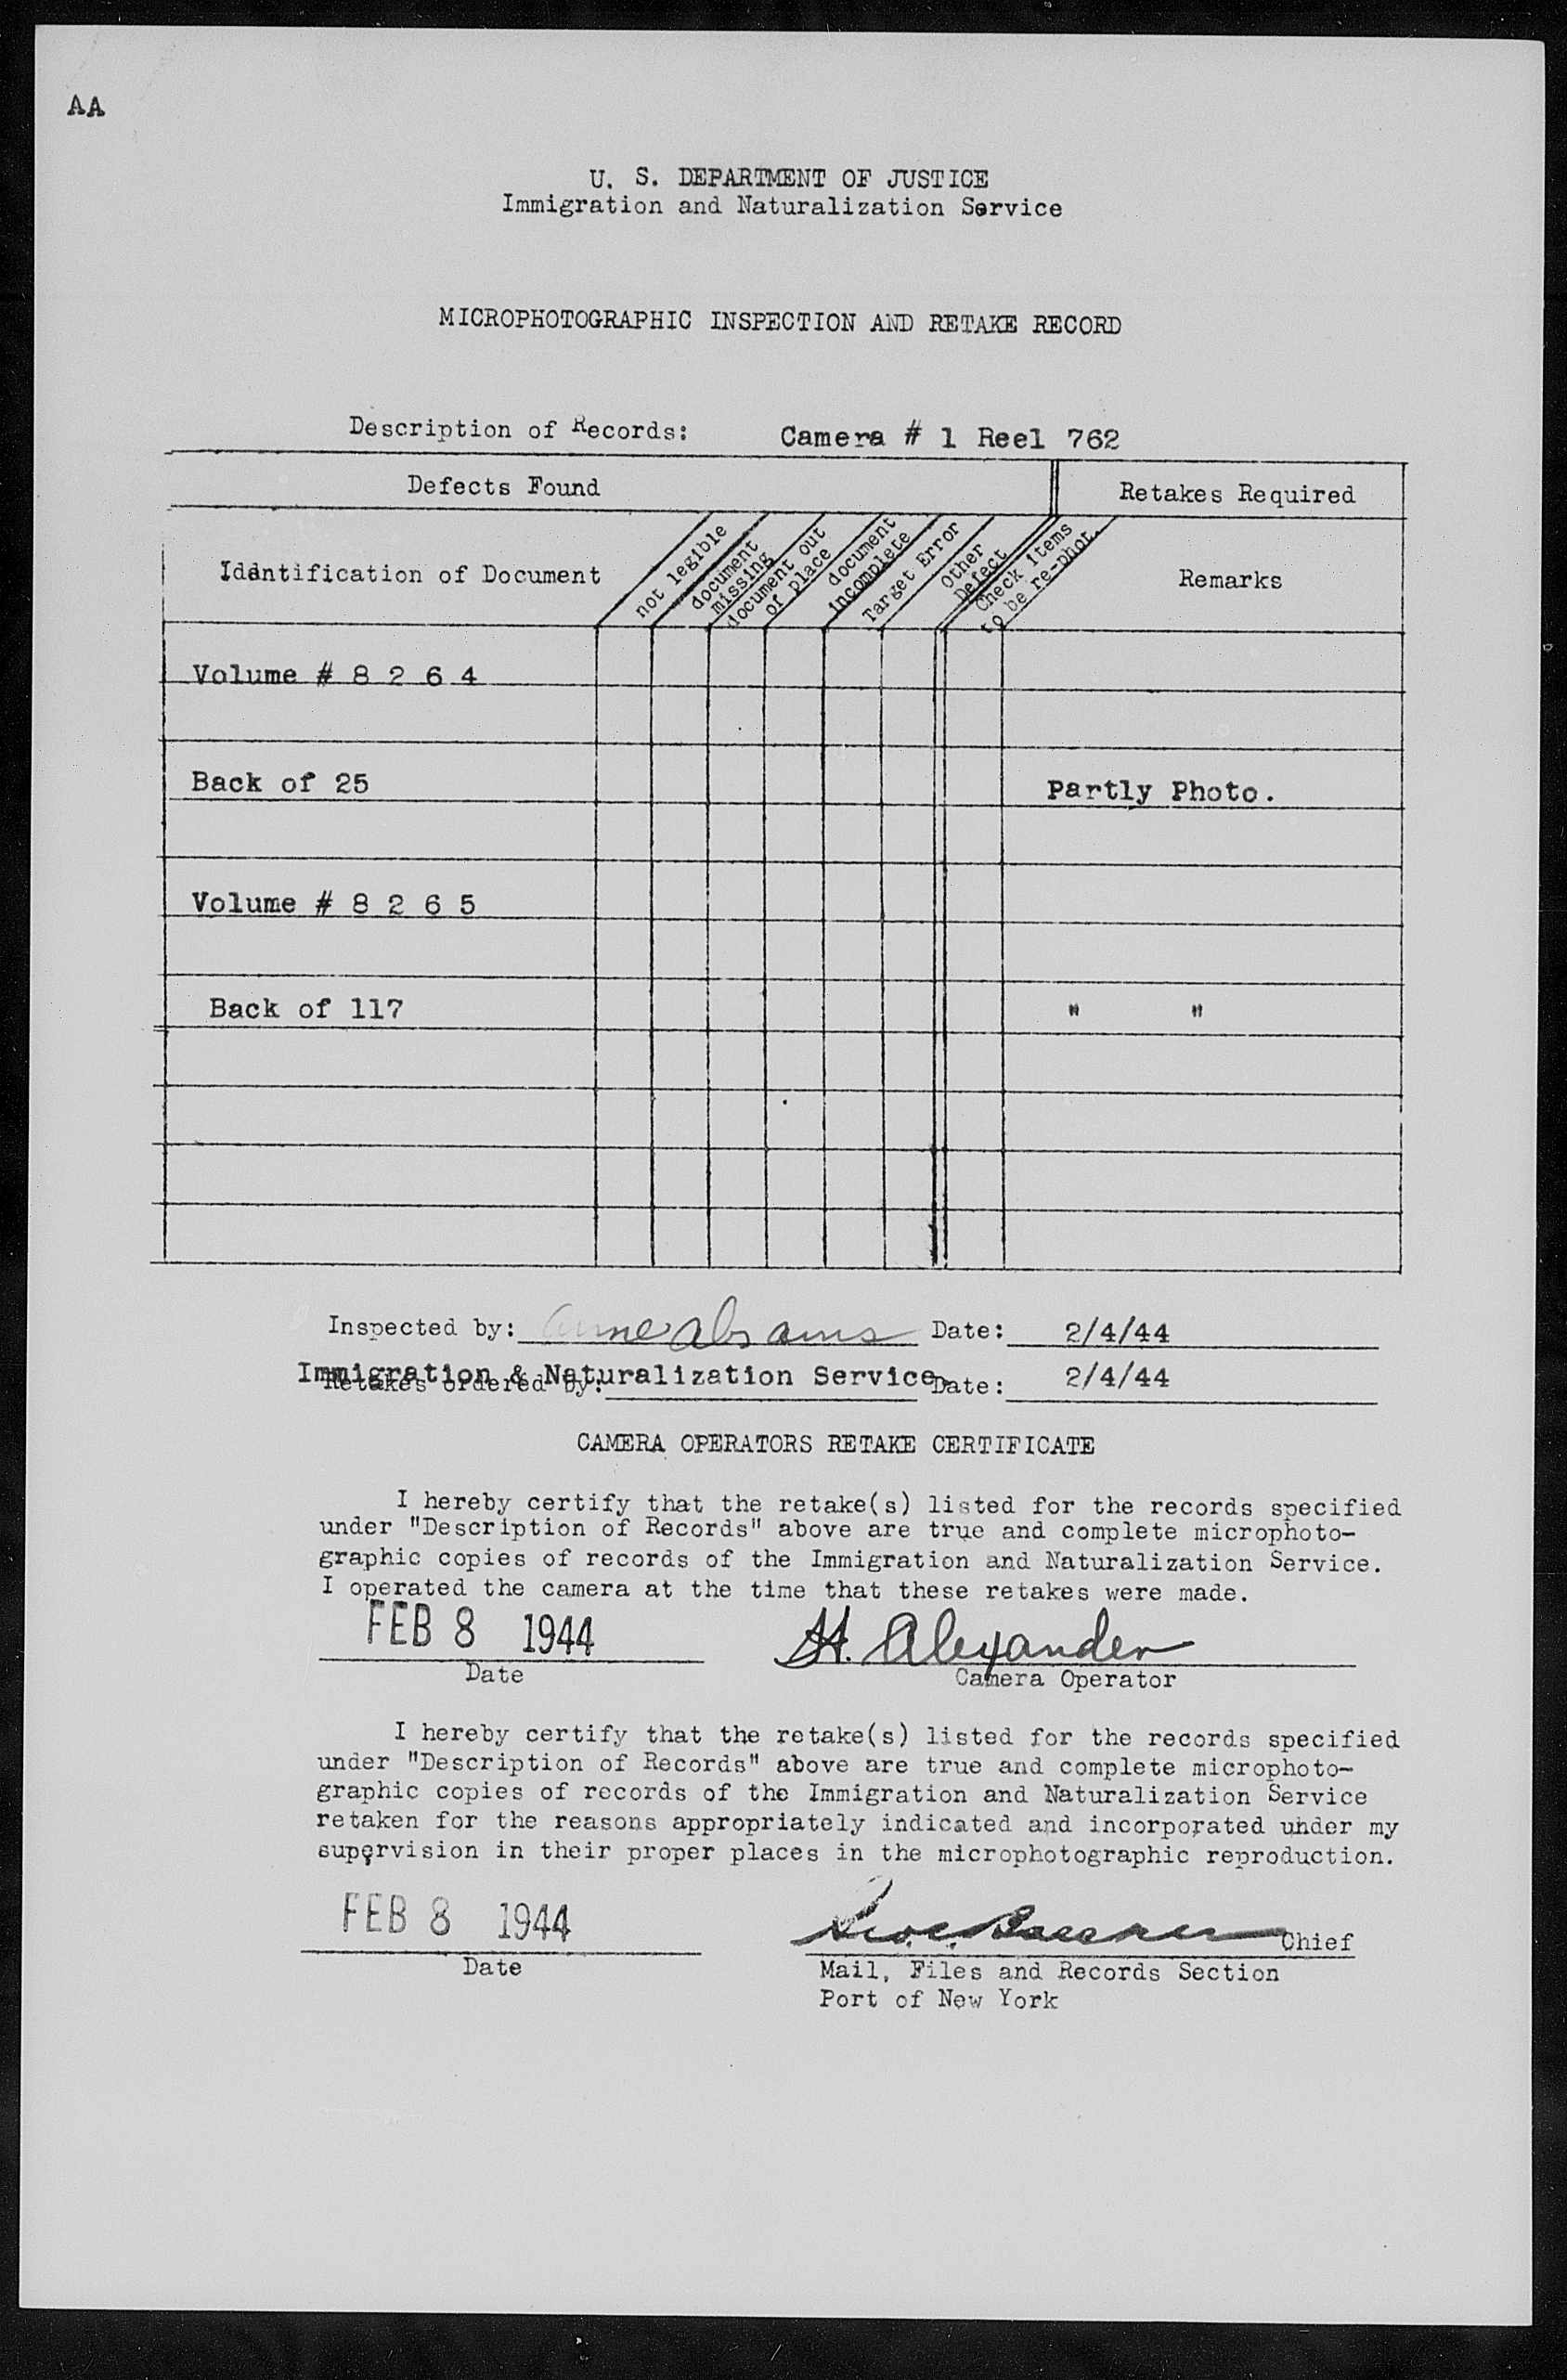 AA
U. S. DEPARTMENT OF JUSTICE
Immigration and Naturalization Service
MICROPHOTOGRAPHIC INSPECTION AND RETAKE RECORD
Description of Records: Camera # 1 Reel 762
Defects Found
Retakes Required
Identification of Document
not legible
document
missing
document out
of place
document
incomplete
Target Error
Other
Defect
Check items
to be re-phot.
Remarks
Volume # 8 2 6 4
Back of 25 Partly Photo.
Volume # 8 2 6 5
Back of 117 " "
Inspected by: Anne Abrams Date: 2/4/44
Immigration & Naturalization Service.
Retakes ordered by: Date: 2/4/44
CAMERA OPERATORS RETAKE CERTIFICATE
I hereby certify that the retake(s) listed for the records specified
under "Description of Records" above are true and complete microphoto-
graphic copies of records of the Immigration and Naturalization Service.
I operated the camera at the time that these retakes were made.
FEB 8 1944 H. Alexander
Date Camera Operator
I hereby certify that the retake(s) listed for the records specified
under "Description of Records" above are true and complete microphoto-
graphic copies of records of the Immigration and Naturalization Service
retaken for the reasons appropriately indicated and incorporated under my
supervision in their proper places in the microphotographic reproduction.
FEB 8 1944 Chief
Date Mail, Files and Records Section
Port of New York